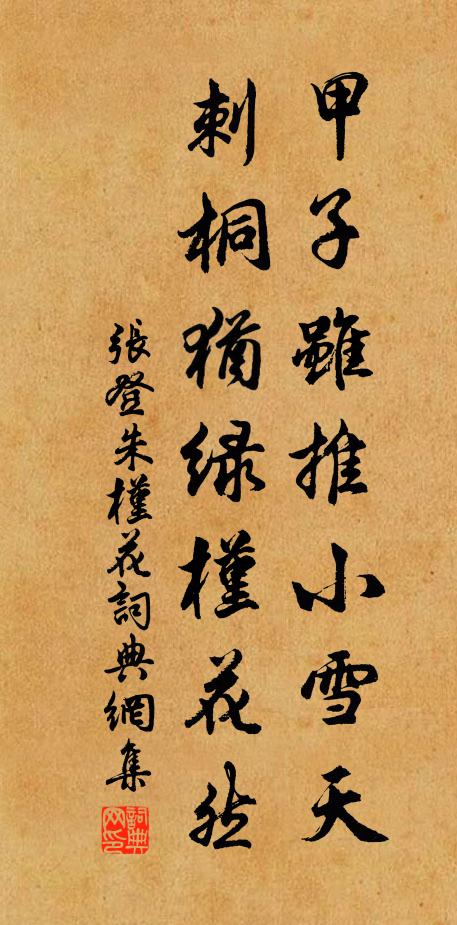 甲子雖推小雪天
刺桐猶绿槿花然
張登朱槿花詞典網集
詞典网印